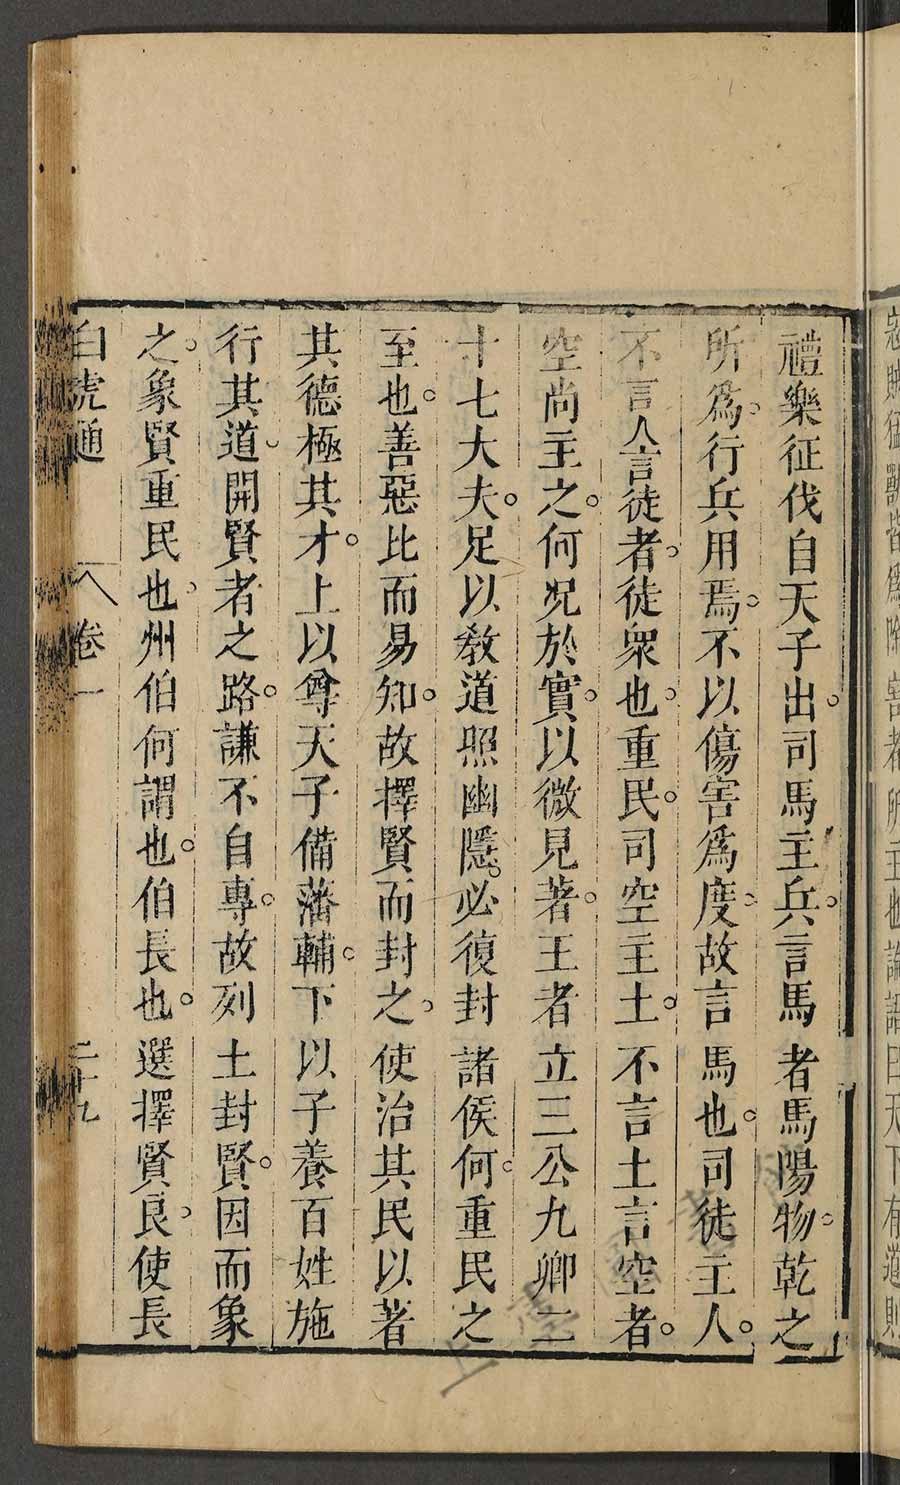 惡賊猛獸皆爲除害者所主也論語曰天下有道則
禮樂征伐自天子出司馬主兵言馬者馬陽物乾之
所爲行兵用焉不以傷害爲度故言馬也司徒主人
不言人言徒者徒衆也重民司空主土不言土言空者
空尚主之何况於實以微見著王者立三公九卿二
十七大夫足以教道照幽隱必復封諸侯何重民之
至也善惡比而易知故擇賢而封之使治其民以著
其德極其才上以尊天子備藩輔下以子養百姓施
行其道開賢者之路謙不自專故列土封賢因而象
之象賢重民也州伯何謂也伯長也選擇賢良使長
白虎通 卷一 二十九